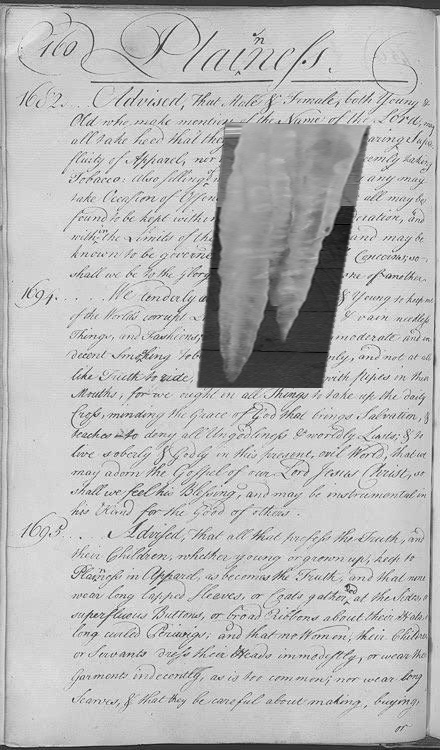 160
Plainness.
1682... Advised, That Male & Female, both Young &
Old who make mention of the Name of the Lord, may
all take heed that the
fluity of Apparel, nor
Tobacco: Also selling or any may
take Occasion of Offen all may be
found to be kept within eration, and
within the Limits of the and may be
known to be govern'd Concerns; so
shall we be to the Glory one of another.
1694..... We tenderly a & Young to keep out
of the World's corrupt & vain needless
Things, and Fashions, immoderate and in-
decent Smoking Tob nly, and not at all
like Truth to ride, with pipes in their
Mouths; for we ought in all Things to take up the daily
Cross, minding the Grace of God that brings Salvation, &
teaches to deny all Ungodliness & worldly Lusts, & to
live soberly & Godly in this present, evil World, that we
may adorn the Gospel of our Lord Jesus Christ, so
shall we feel his Blessing, and may be instrumental in
his Hand for the Good of others.
1695... Advised, That all that profess the Truth, and
their Children, whether young or grown up, keep to
Plainness in Apparel, as becomes the Truth, and that none
wear long lapped Sleeves, or Coats gathered at the Sides, or
superfluous Buttons, or broad Ribbons about their Hats, or
long curled Perriwigs; and that no Women, their Children
or Servants dress their Heads immodestly, or wear their
Garments indecently, as is too common; nor wear long
Scarves, & that they be careful about making, buying,
or